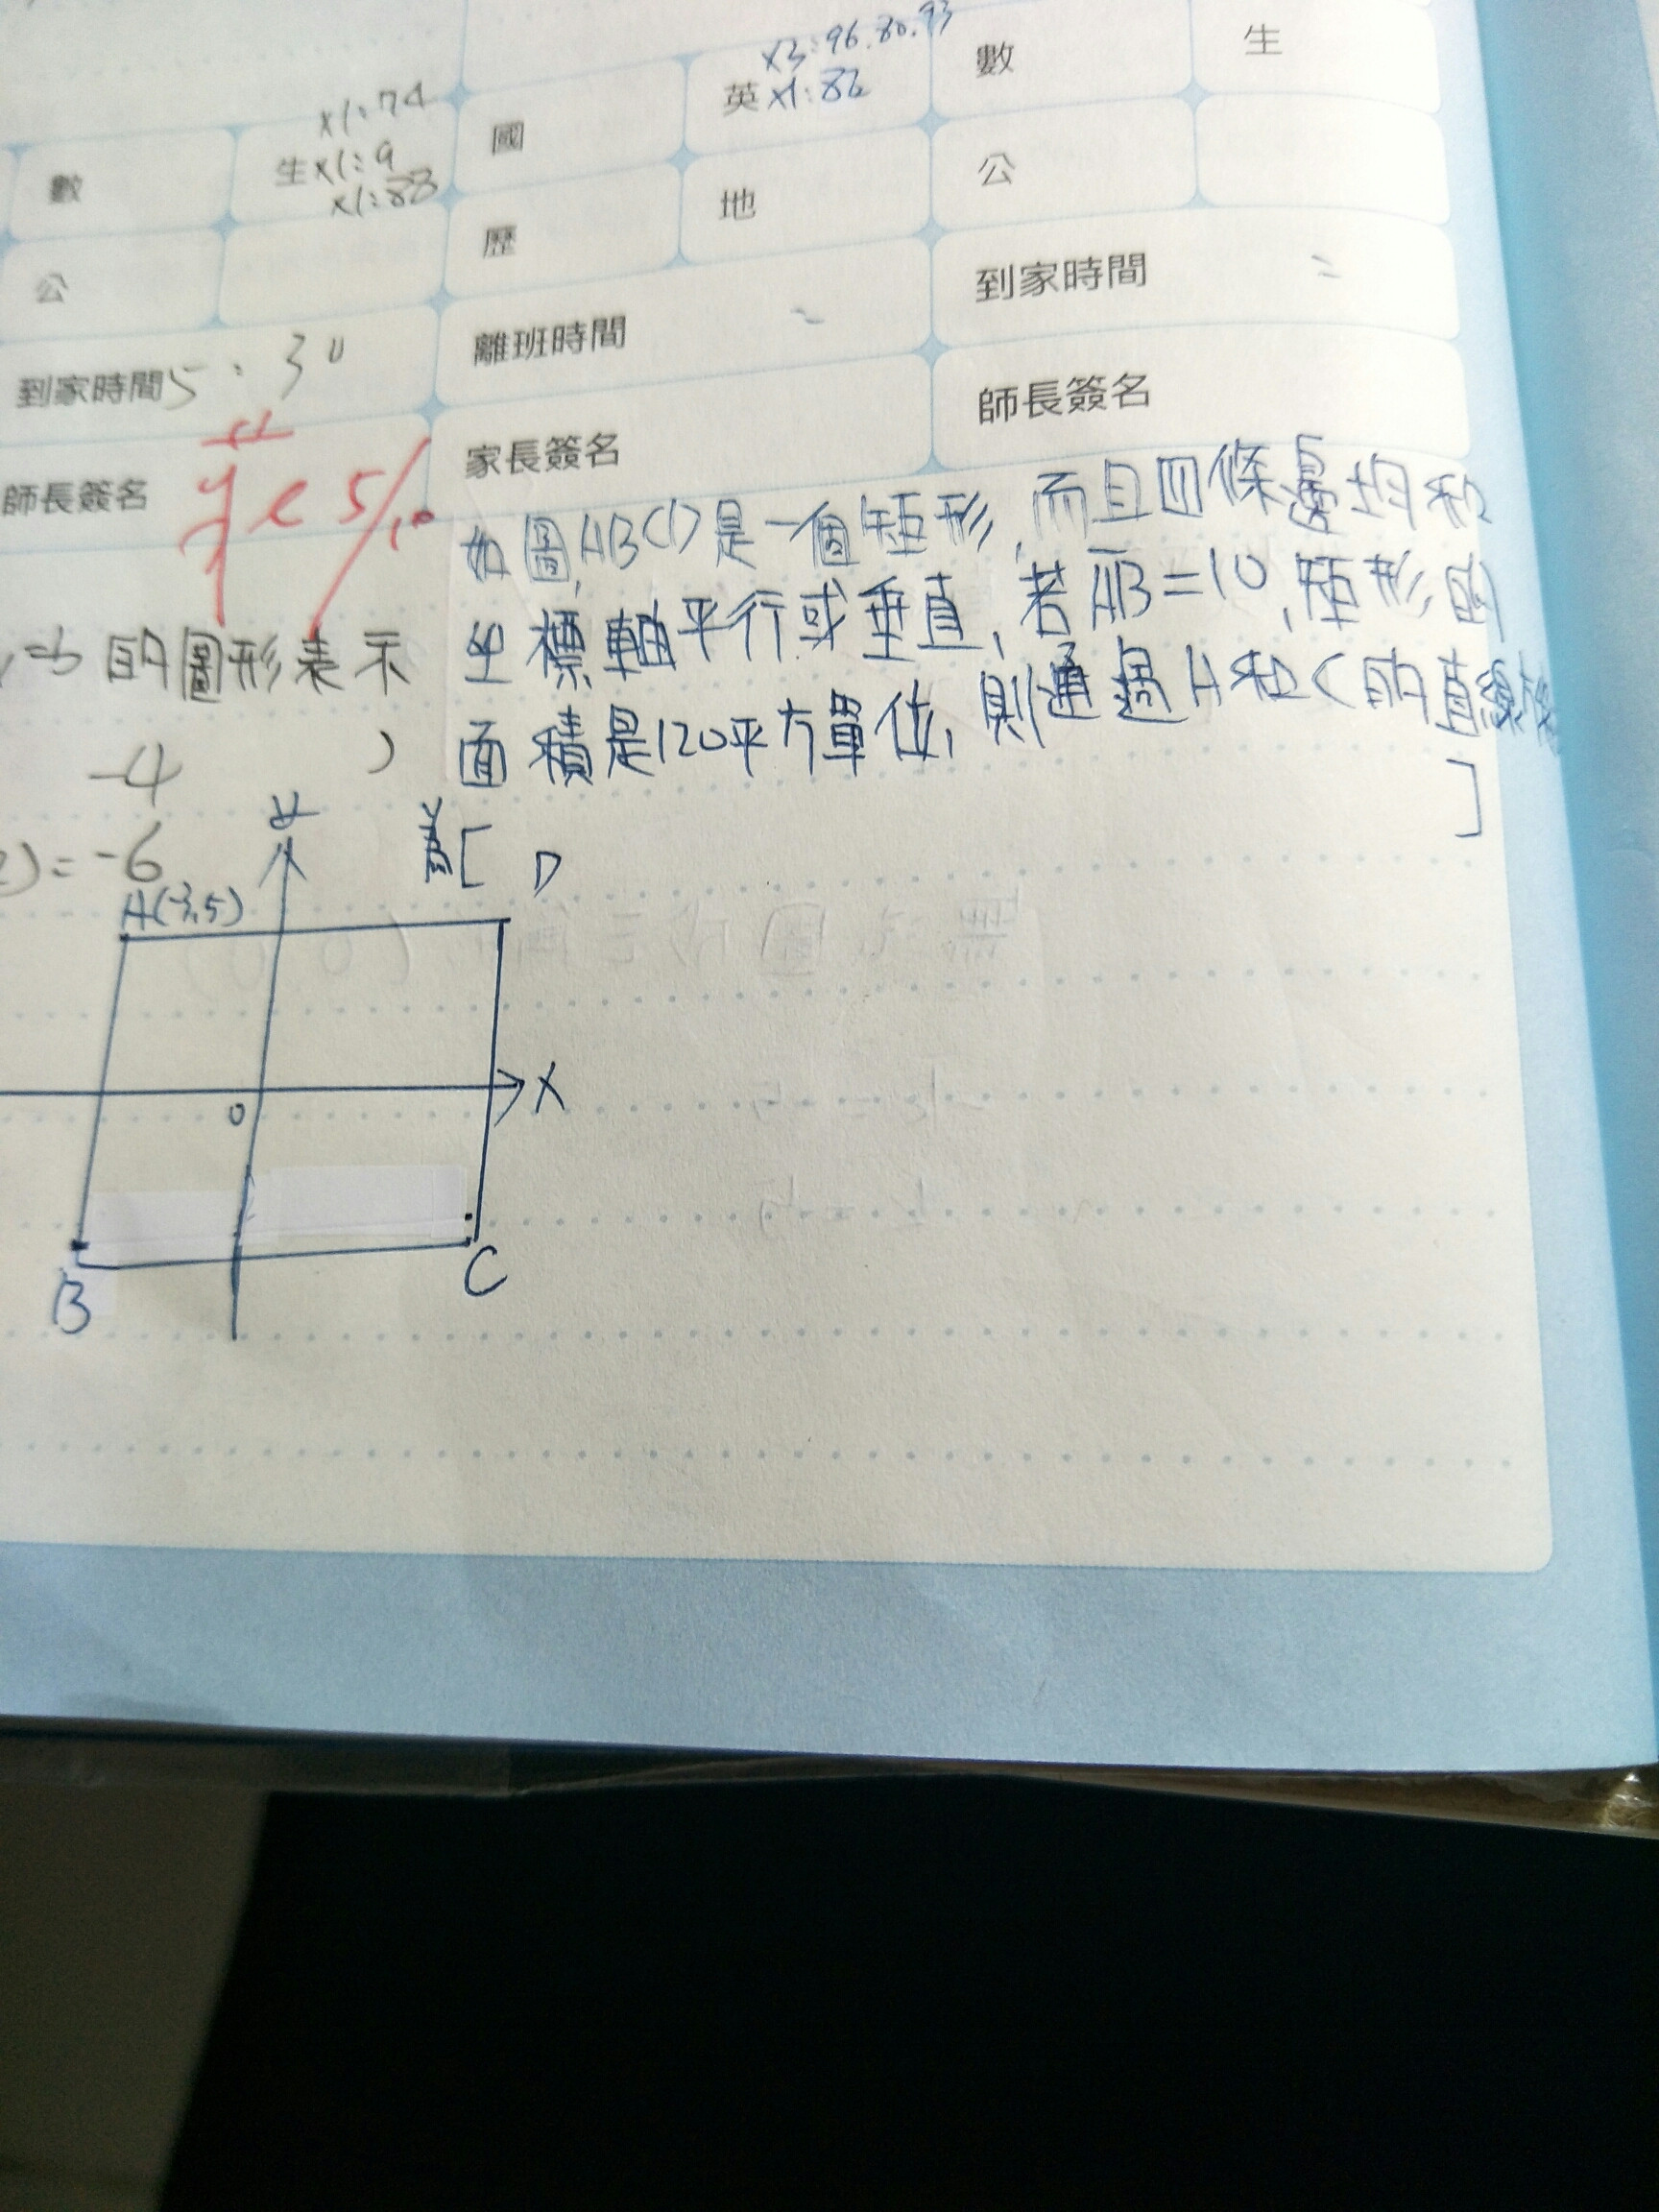 x3:96.80.93
數
生
英x1:86
x1:74
國
生x1:9
數
x1:88
公
地
歷
公
到家時間 =
離班時間
到家時間5:30
師長簽名
家長簽名
師長簽名
5/10
如圖,ABCD是一個矩形,而且四條邊均和
坐標軸平行或垂直,若AB=10,矩形的
面積是120平方單位,則通過A和C的直線
=b的圖形表示
-4
)
]
y
[
D
2)=-6
A(-3,5)
0
X
B
C